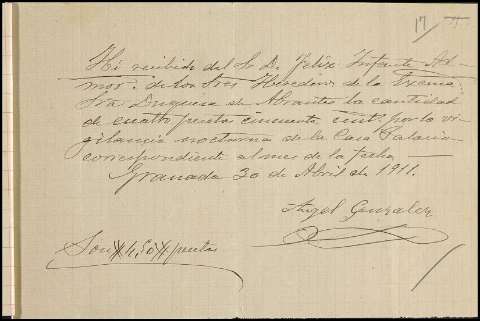 17
He recibido del S. D. Felix Infante Ad-
mor. de los Sres Herederos de la Excma
Sra Duquesa de Abrantes la cantidad
de cuatro pesetas cincuenta cent. por la vi-
gilancia nocturna de la Casa Palacio
correspondiente al mes de la fecha
Granada 30 de Abril de 1911.
Angel Gonzalez
Son # 4,50 # pesetas